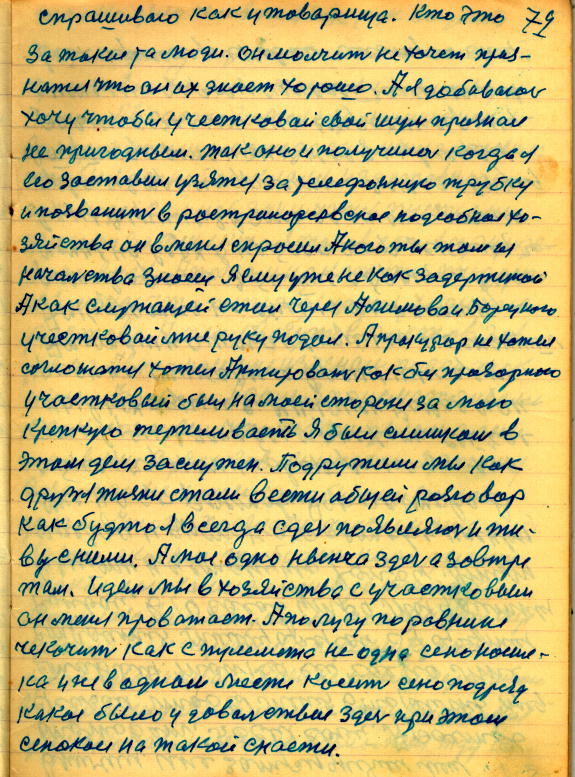 спрашиваю как у товарища. Кто это 79
за такие та люди. он молчит не хочет приз-
натся что он их знает хорошо. А я добаваюсь
хочу чтобы участковай свой шум признал
не пригодным. так оно и получилось когда я
его заставил узятся за телефонную трубку
и позванить в растриножевское подсобное хо-
зяйства он в меня спросил А кого ты там из
началства знаеш Я ему уже не как задержаной
А как служащей стал через Акимова и Борецкого
участковай мне руку подал. А прокурор не хотел
соглашатся хотел Актировать как бы прозорного
участковый был на моей стороне за мою
крепкую терпеливасть Я был слишком в
этом деле заслужен. Подружили мы как
друзья жизни стали вести общей разговор
как будто я всегда здесь появляюсь и жи-
ву с ними. А мое одно нынча здесь а завтре
там. Идем мы в хозяйства с участковым
он меня проважает. А по лугу по равнине
чекочит как с пулемета не одна сенокосил-
ка и не в аднам месте косит сено подряд
какое было у доволствие здесь при этом
сенокосе на такой снасти.